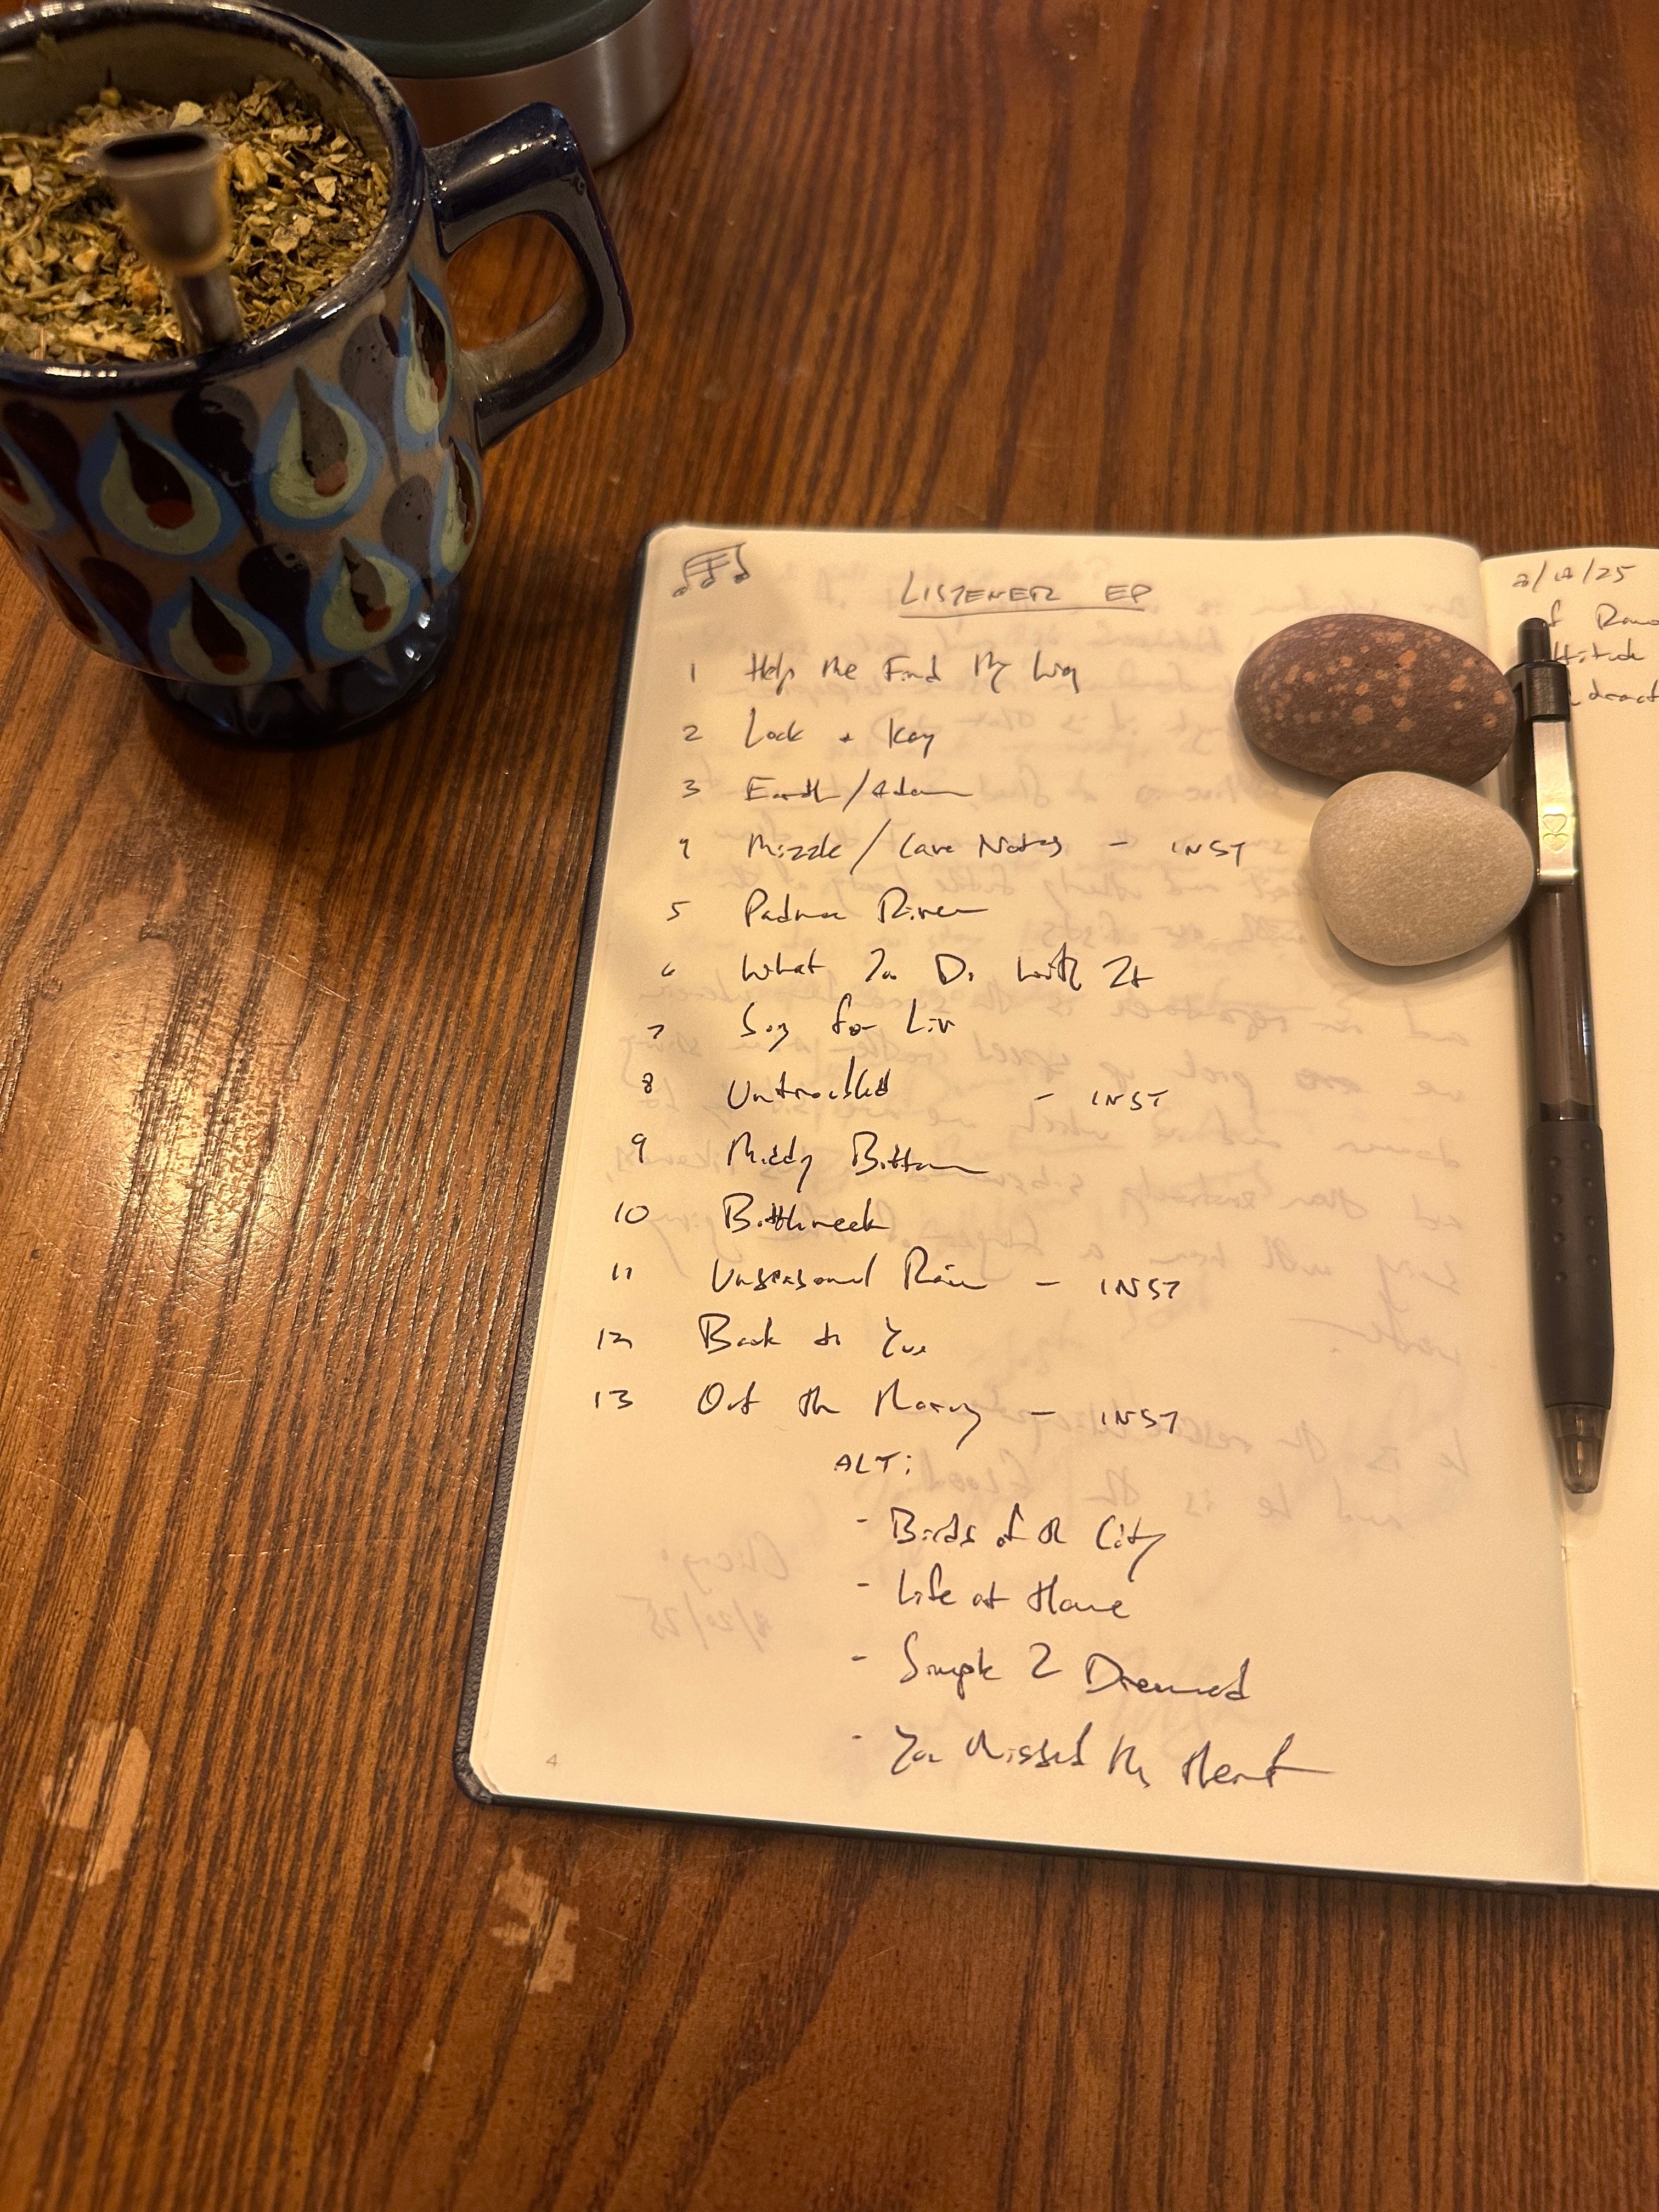 LISTENER EP
1 Help Me Find My Way
2 Lock + Key
3 Earth/Adam
4 Mizzle / Cave Notes - INST
5 Padma River
6 What You Do With It
7 Song for Liv
8 Untroubled - INST
9 Muddy Bottom
10 Bottleneck
11 Unseasonal Rain - INST
12 Back to You
13 Out the - INST
ALT:
- Birds of the City
- Life at Home
- Simple 2 Dreamed
- You Missed My Heart
4